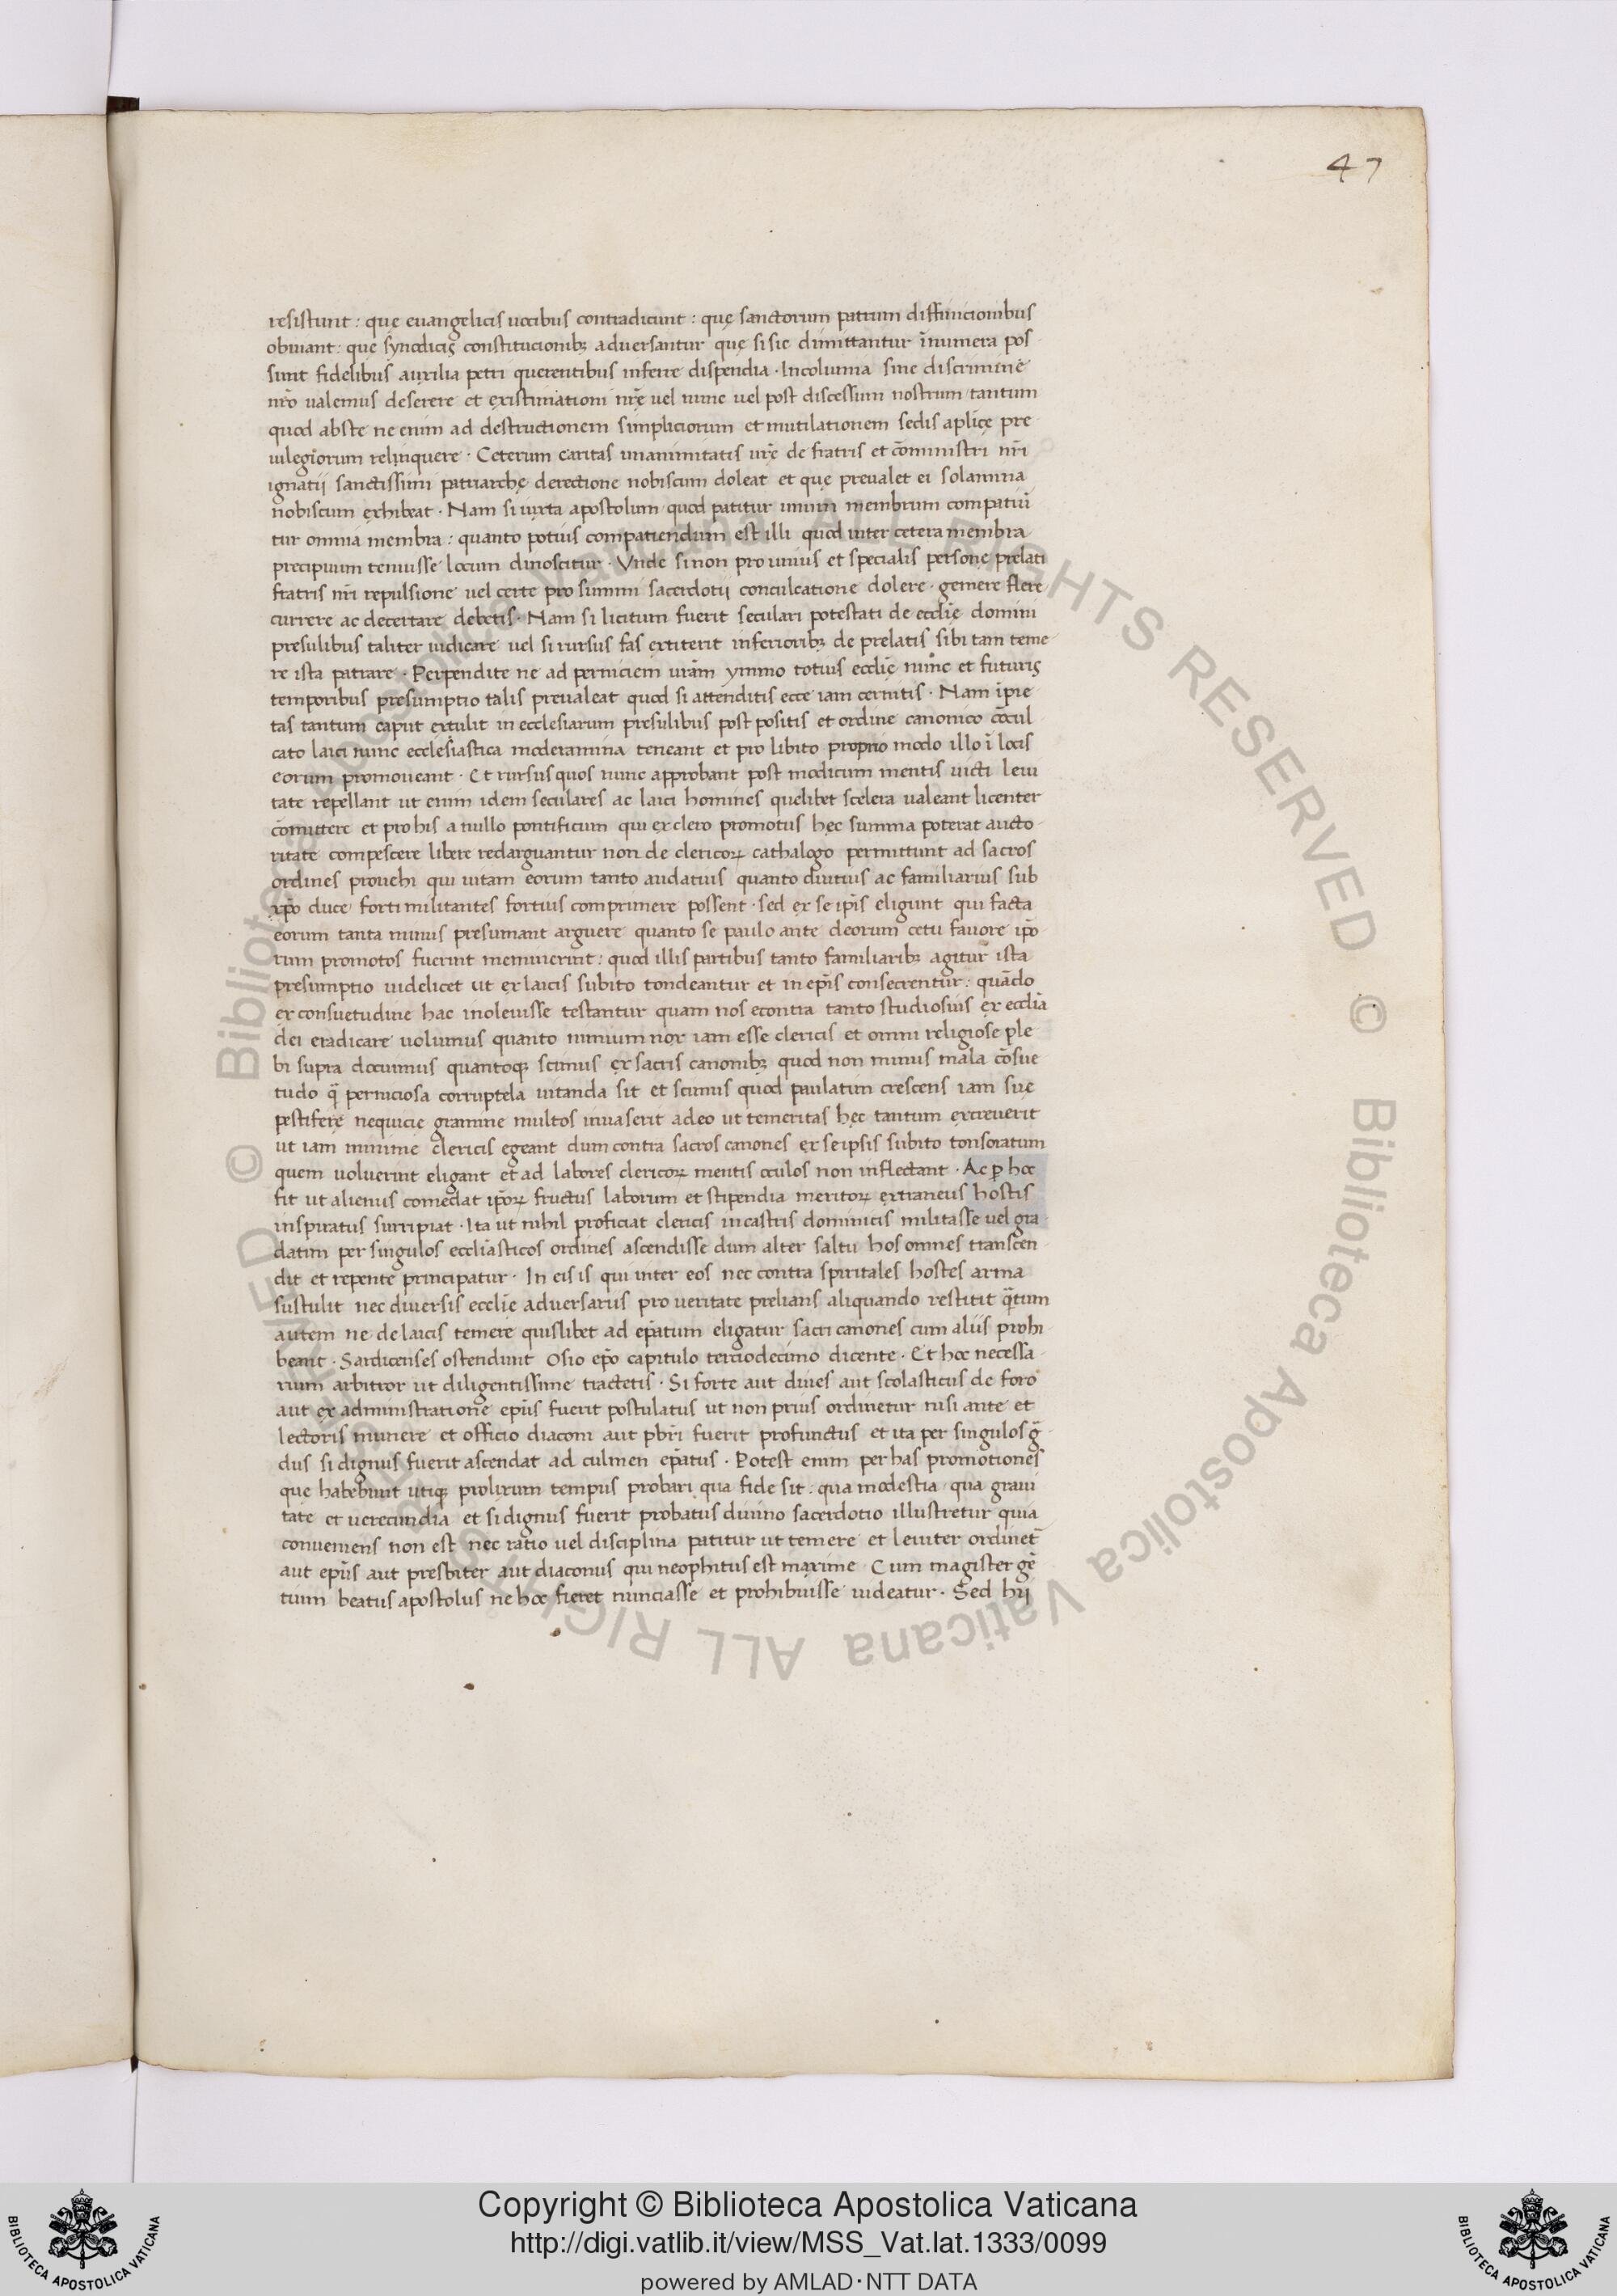 47
resistunt : que euangelicis uocibus contradicunt : quę sanctorum patrum diffinicionibus
obuiant : que synodicis constitucionibꝫ aduersantur quę si sic dimittantur īnumera pos
sunt fidelibus auxilia petri querentibus inferre dispendia · Incoluma sine discrimine
nr̄o ualemus deserere et existimationi nr̄ę uel nunc uel post discessum nostrum tantum
quod abste ne enim ad destructionem simpliciorum et mutilationem sedis aplicę pre
uilegiorum relinquere · Ceterum caritas unanimitatis ur̄ę de fratris et cōministri nr̄i
ignatij sanctissimi patriarchę derectione nobiscum doleat et quę preualet ei solamina
nobiscum exhibeat · Nam si iuxta apostolum quod patitur unum membrum compatiū
tur omnia membra : quanto potius compatiendum est illi quod inter cetera membra
precipuum tenuisse locum dinoscitur · Vnde si non pro unius et specialis personę prelati
fratris nr̄i repulsione uel certe pro summi sacerdotij conculcatione dolere · gemere flere
currere ac decertare debetis · Nam si licitum fuerit seculari potestati de eccl̄ie domini
presulibus taliter iudicare uel si rursus fas extiterit inferioribꝫ de prelatis sibi tam teme
re ista patrare · Perpendite ne ad perniciem ur̄am ymmo totius eccl̄ię nunc et futuris
temporibus presumptio talis preualeat quod si attenditis ecce iam cernitis · Nam īpie
tas tantum caput extulit in ecclesiarum presulibus post positis et ordine canonico cōcul
cato laici nunc ecclesiastica moderamina teneant et pro libito proprio modo illo ī locis
eorum promoueant · Et rursus quos nunc approbant post modicum mentis uicti leui
tate repellant ut enim idem seculares ac laici homines quelibet scelera ualeant licenter
cōmittere et pro his a nullo pontificum qui ex clero promotus hęc summa poterat aucto
ritate compescere libere redarguantur non de clericoꝝ cathalogo permittunt ad sacros
ordines prouehi qui uitam eorum tanto audatius quanto diutius ac familiarius sub
xp̄o duce forti militantes fortius comprimere possent · sed ex se ip̄is eligunt qui facta
eorum tanta minus presumant arguere quanto se paulo ante deorum cetu fauore ip̄o
rum promotos fuerint meminerint : quod illis partibus tanto familiaribꝫ agitur ista
presumptio uidelicet ut ex laicis subito tondeantur et in ep̄is consecrentur : quādo
ex consuetudine hac inoleuisse testantur quam nos econtra tanto studiosius ex eccl̄ia
dei eradicare uolumus quanto nimium nox iam esse clericis et omni religiose ple
bi supra docuimus quantoqꝫ scimus ex sacris canonibꝫ quod non minus mala cōsue
tudo q̄ perniciosa corruptela uitanda sit et scimus quod paulatim crescens iam suę
pestiferę nequicie gramine multos inuaserit adeo ut temeritas hęc tantum excreuerit
ut iam minime clericis egeant dum contra sacros canones ex se ipsis subito tonsoratum
quem uoluerint eligant et ad labores clericoꝝ mentis oculos non inflectant · Ac ꝑ hoc
fit ut alienus comedat ip̄oꝝ fructus laborum et stipendia meritoꝝ extraneus hostis
inspiratus surripiat · Ita ut nihil proficiat clericis in castris dominicis militasse uel gra
datim per singulos eccl̄iasticos ordines ascendisse dum alter saltu hos omnes transcen
dit et repente principatur · In eis is qui inter eos nec contra spiritales hostes arma
sustulit nec diuersis eccl̄ie aduersariis pro ueritate prelians aliquando restitit q̄tum
autem ne de laicis temere quislibet ad ep̄atum eligatur sacri canones cum aliis prohi
beant · Sardicenses ostendunt Osio ep̄o capitulo terciodecimo dicente · Et hoc necessa
rium arbitror ut diligentissime tractetis · Si forte aut diues aut scolasticus de foro
aut ex administratione ep̄us fuerit postulatus ut non prius ordinetur nisi ante et
lectoris munere et officio diaconi aut pbr̄i fuerit profunctus et ita per singulos ḡ
dus si dignus fuerit ascendat ad culmen ep̄atus · Potest enim per has promotiones
que habebunt utiqꝫ prolixum tempus probari qua fide sit · qua modestia · qua graui
tate et uerecundia et si dignus fuerit probatus diuino sacerdotio illustretur quia
conueniens non est nec ratio uel disciplina patitur ut temere et leuiter ordinet̄
aut ep̄us aut presbiter aut diaconus qui neophitus est maxime Cum magister gē
tium beatus apostolus ne hoc fieret nunciasse et prohibuisse uideatur · Sed hij
© Biblioteca Apostolica Vaticana ALL RIGHTS RESERVED © Biblioteca Apostolica Vaticana ALL RIGHTS RESERVED
Copyright © Biblioteca Apostolica Vaticana
http://digi.vatlib.it/view/MSS_Vat.lat.1333/0099
powered by AMLAD·NTT DATA
BIBLIOTECA APOSTOLICA VATICANA
BIBLIOTECA APOSTOLICA VATICANA